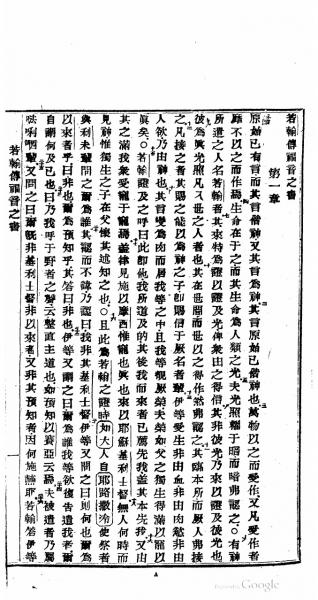 若翰傳福音之書
第一章
原始已有言而其言偕神又其言為神其言原始已偕神也萬物以之而受作又凡受作者
無不以之而作焉生命在于之而其生命為人類之光夫光照耀于暗而暗弗認之○有神
所遣之人名若翰者其來特為證以證及光俾衆由之得信其非彼光乃來以證及彼光也
彼為真光照凡入世之人者也其在世間而世以之得作然弗認之其臨本所而厥人弗接
之凡接之者其賜之能以為神之子即賜信于厥名者輩伊等受生非由血非由肉慾非由
人欲乃由神也其言變為肉而居我等之中且我等覩厥榮夫榮如父之獨生得滿以寵以
真矣○若翰證及之呼曰此即他我所道及的其後我而來者已薦先我蓋其本先我又由
其之滿我衆受寵于寵焉蓋律見施以摩西惟寵也真也來以耶穌基利士督無人何時而
見神惟獨生之子在父懷其述知之也○且此為若翰之證時如大人自耶路撒冷使祭者
與利未輩問之曰爾為誰其認而不諱乃認曰我非其基利士督伊等又問之曰則何也爾為
以來者乎曰非也爾為預知乎其答曰非也伊等又謂之曰爾為誰我等欲復告遣我者爾
自謂何及己也曰乃我呼于野者之聲云整直主道也如預知以賽亞云焉夫被遣者乃屬
唎輩又問之曰爾既非基利士督非以來者又非其預知者因何施蘸耶若翰答伊等
若翰傳福音之書
Google